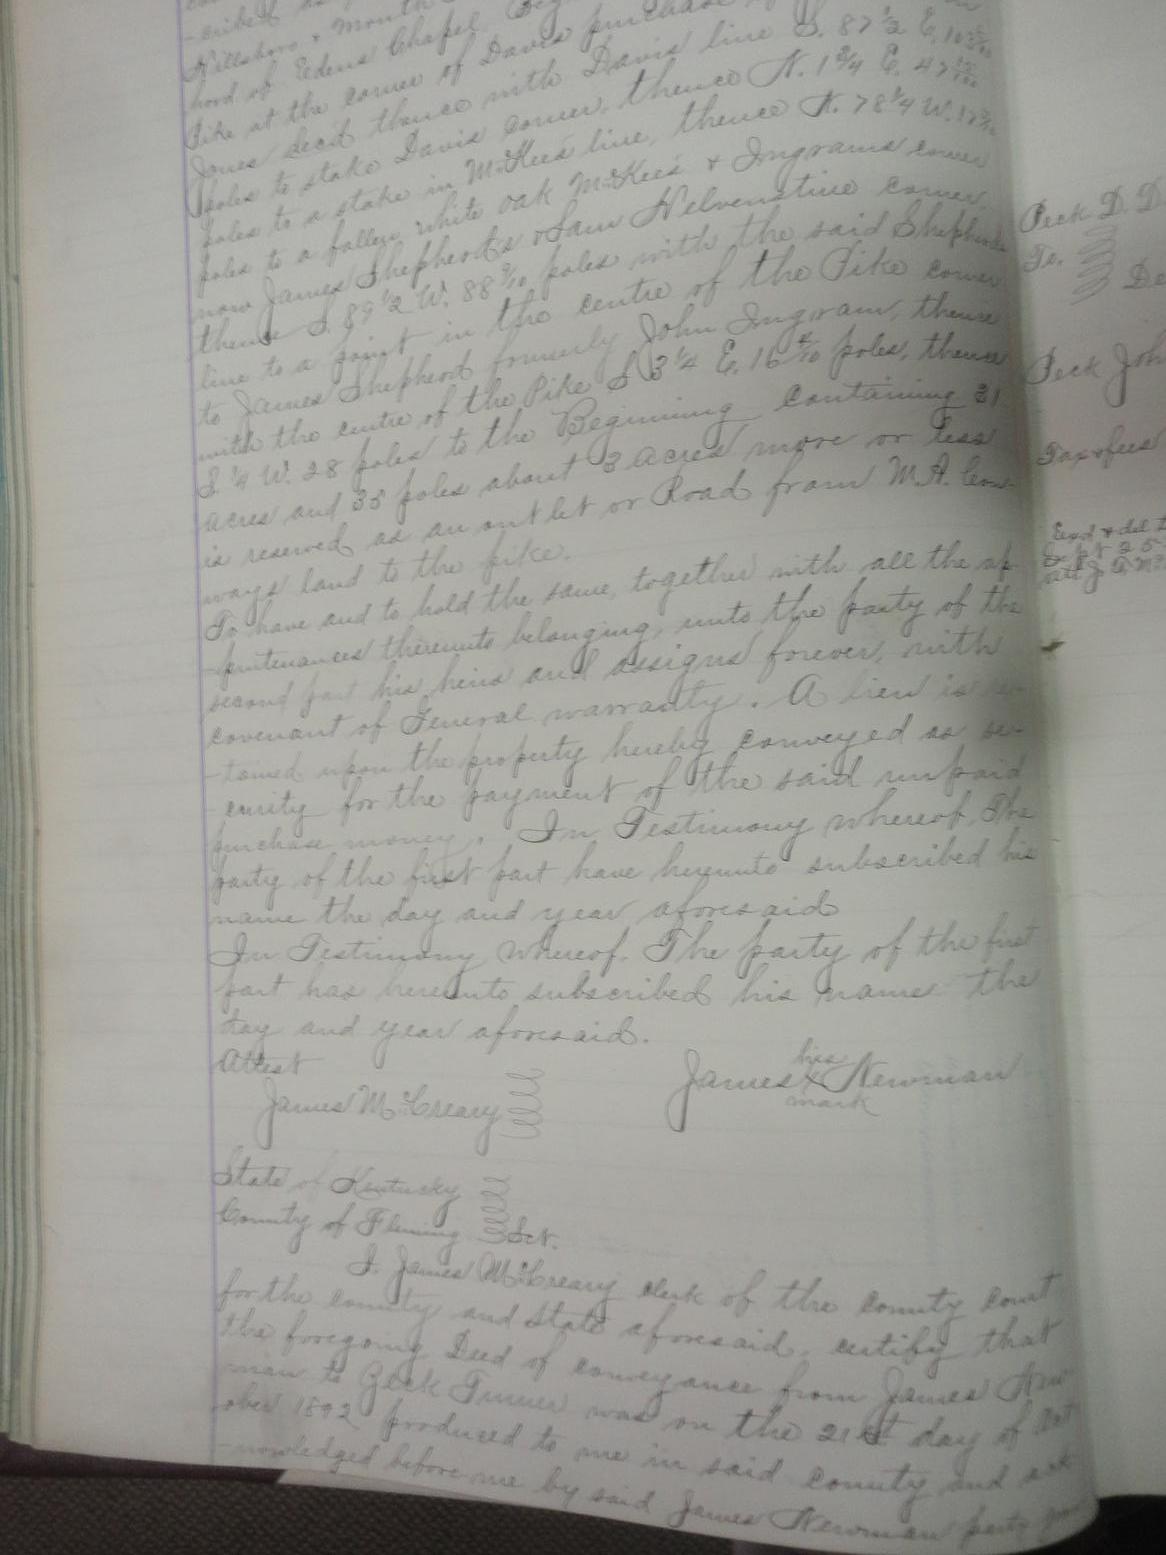 -cribed as
Hillsboro & Month
hood of Edens Chapel. Beg
Pike at the corner of Davis purchase
Jones deed thence with Davis line S. 87 1/2 E. 10
poles to stake Davis corner, thence N. 1 3/4 E. 47
poles to a stake in McKees line, thence N. 78 1/4 W. 17
poles to a fallen white oak McKee's & Ingrams corner
now James Shepherds & Sam Helvenstine corner.
thence S. 89 1/2 W. 88 9/10 poles with the said Shepherds
line to a point in the centre of the Pike corner
to James Shepherd formerly John Ingram, thence
with the centre of the Pike S 3 1/4 E. 16 4/10 poles, thence
S. 1/4 W. 28 poles to the Beginning containing 31
acres and 35 poles about 3 acres more or less
is reserved as an outlet or Road from M. A. Con-
ways land to the pike.
To have and to hold the same, together with all the ap-
-purtenances thereunto belonging, unto the party of the
second part his heirs and assigns forever, with
covenant of General warranty. A lien is re-
-tained upon the property hereby conveyed as se-
-curity for the payment of the said unpaid
purchase money. In Testimony whereof, The
party of the first part have hereunto subscribed his
name the day and year aforesaid
In Testimony whereof. The party of the first
part has hereunto subscribed his name the
day and year aforesaid.
Attest
James McCreary
his
James X Newman
mark
State of Kentucky
County of Fleming Sct.
I. James McCreary clerk of the county court
for the county and State aforesaid, certify that
the foregoing Deed of conveyance from James New-
man to Zeck Turner was on the 21st day of Oct
ober 1892 produced to me in said county and ack
-nowledged before me by said James Newman party
Peck D. D
To.
De
Peck John
Tax & fees